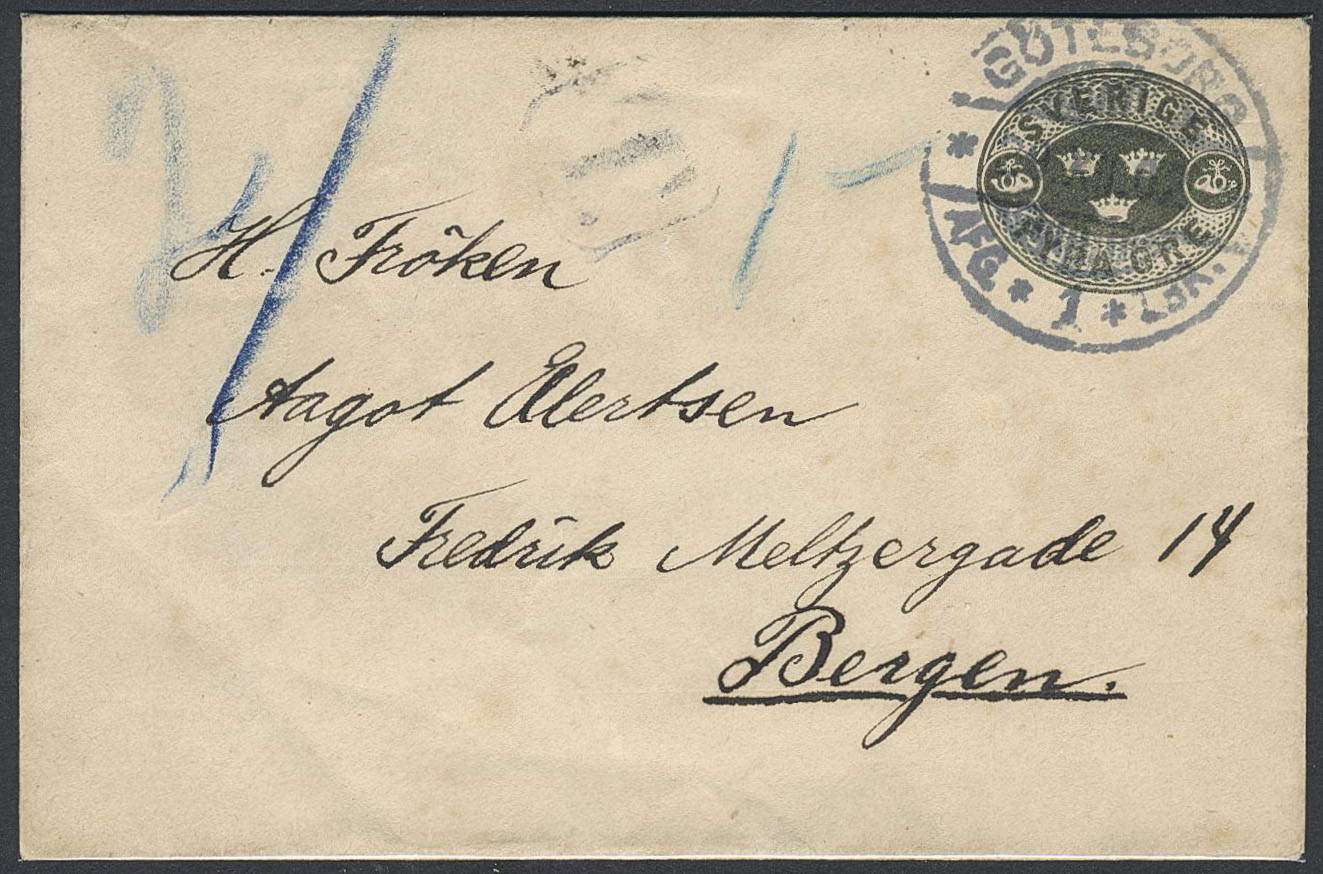 GÖTEBORG
SVERIGE
FYRA ÖRE
AFG. * 1 * LBR.
H. Fröken
Aagot Elertsen
Fredrik Meltzergade 14
Bergen.